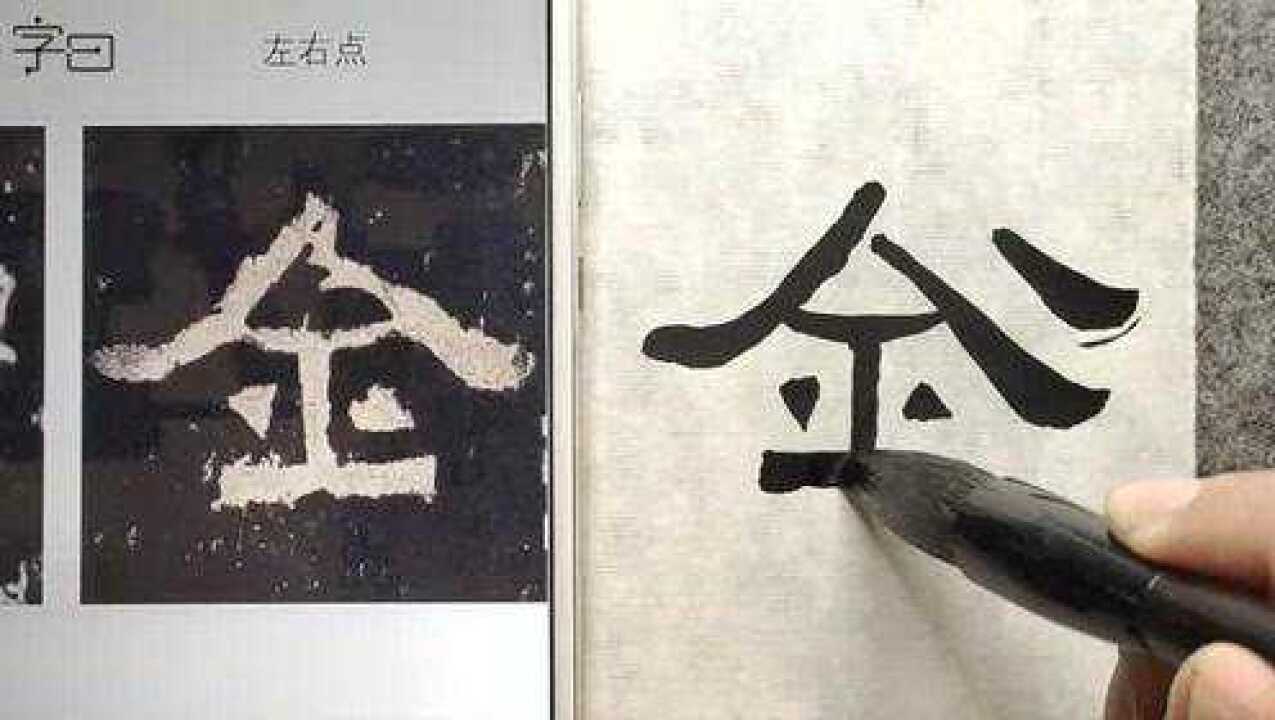 字曰 左右点
金 金